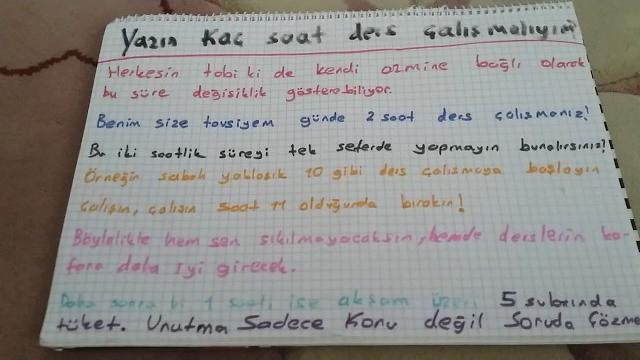 Yazın kaç saat ders çalışmalıyım?
Herkesin tabi ki de kendi azmine bağlı olarak
bu süre değişiklik gösterebiliyor.
Benim size tavsiyem günde 2 saat ders çalışmanız!
Bu iki saatlik süreyi tek seferde yapmayın bunalırsınız!
Örneğin sabah yaklaşık 10 gibi ders çalışmaya başlayın
Çalışın, çalışın saat 11 olduğunda bırakın!
Böylelikle hem sen sıkılmayacaksın, hemde derslerin ka-
fana daha iyi girecek.
Daha sonra ki 1 saati ise akşam üzeri 5 sularında
tüket. Unutma Sadece Konu değil Soruda Çözme